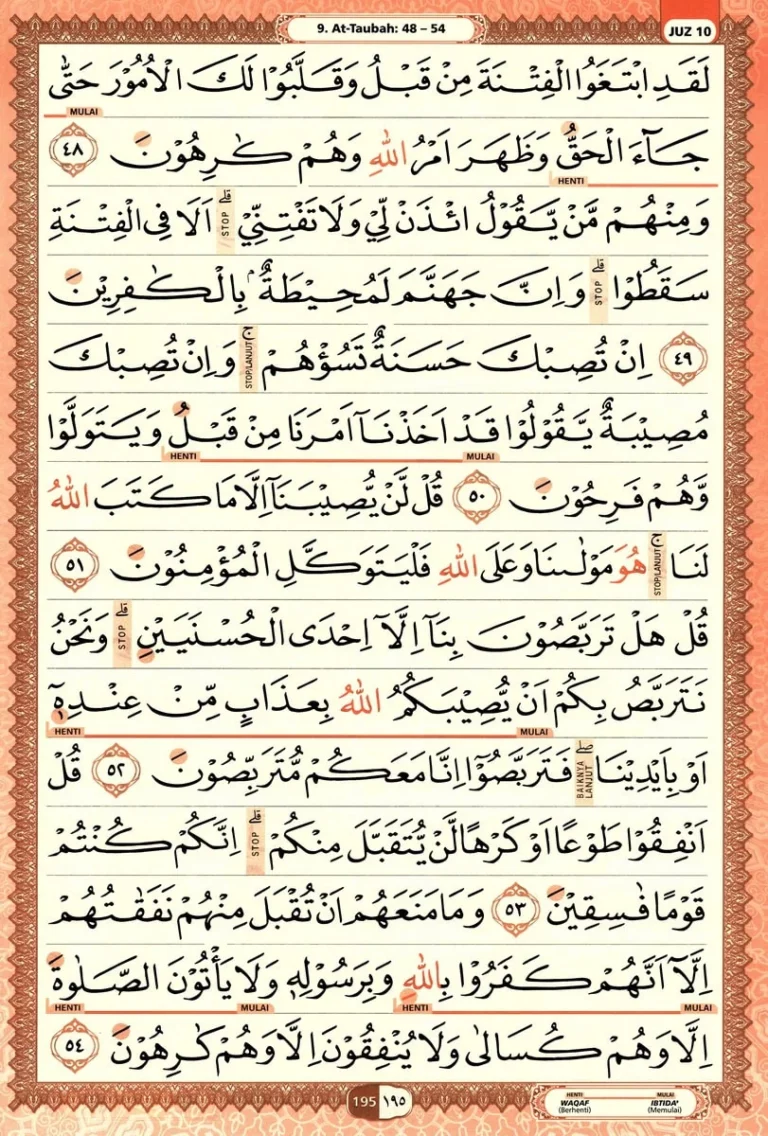 9. At-Taubah: 48 – 54
JUZ 10
لَقَدِ ابْتَغَوُا الْفِتْنَةَ مِنْ قَبْلُ وَقَلَّبُوْا لَكَ الْاُمُوْرَ حَتّٰى
MULAI
جَاۤءَ الْحَقُّ وَظَهَرَ اَمْرُ اللّٰهِ وَهُمْ كٰرِهُوْنَ ٤٨
HENTI
وَمِنْهُمْ مَّنْ يَّقُوْلُ ائْذَنْ لِّيْ وَلَا تَفْتِنِّيْۗ اَلَا فِى الْفِتْنَةِ
STOP
سَقَطُوْاۗ وَاِنَّ جَهَنَّمَ لَمُحِيْطَةٌ ۢ بِالْكٰفِرِيْنَ
STOP
٤٩ اِنْ تُصِبْكَ حَسَنَةٌ تَسُؤْهُمْۚ وَاِنْ تُصِبْكَ
STOP/LANJUT
مُصِيْبَةٌ يَّقُوْلُوْا قَدْ اَخَذْنَآ اَمْرَنَا مِنْ قَبْلُ وَيَتَوَلَّوْا
HENTI MULAI
وَّهُمْ فَرِحُوْنَ ٥٠ قُلْ لَّنْ يُّصِيْبَنَآ اِلَّا مَا كَتَبَ اللّٰهُ
لَنَاۚ هُوَ مَوْلٰىنَا وَعَلَى اللّٰهِ فَلْيَتَوَكَّلِ الْمُؤْمِنُوْنَ ٥١
STOP/LANJUT
قُلْ هَلْ تَرَبَّصُوْنَ بِنَآ اِلَّآ اِحْدَى الْحُسْنَيَيْنِۗ وَنَحْنُ
STOP
نَتَرَبَّصُ بِكُمْ اَنْ يُّصِيْبَكُمُ اللّٰهُ بِعَذَابٍ مِّنْ عِنْدِهٖٓ
HENTI MULAI
اَوْ بِاَيْدِيْنَاۖ فَتَرَبَّصُوْٓا اِنَّا مَعَكُمْ مُّتَرَبِّصُوْنَ ٥٢ قُلْ
BAIKNYA LANJUT
اَنْفِقُوْا طَوْعًا اَوْ كَرْهًا لَّنْ يُّتَقَبَّلَ مِنْكُمْۗ اِنَّكُمْ كُنْتُمْ
STOP
قَوْمًا فٰسِقِيْنَ ٥٣ وَمَا مَنَعَهُمْ اَنْ تُقْبَلَ مِنْهُمْ نَفَقٰتُهُمْ
اِلَّآ اَنَّهُمْ كَفَرُوْا بِاللّٰهِ وَبِرَسُوْلِهٖ وَلَا يَأْتُوْنَ الصَّلٰوةَ
HENTI MULAI HENTI MULAI
اِلَّا وَهُمْ كُسَالٰى وَلَا يُنْفِقُوْنَ اِلَّا وَهُمْ كٰرِهُوْنَ ٥٤
195 ١٩٥
HENTI MULAI
WAQAF IBTIDA'
(Berhenti) (Memulai)